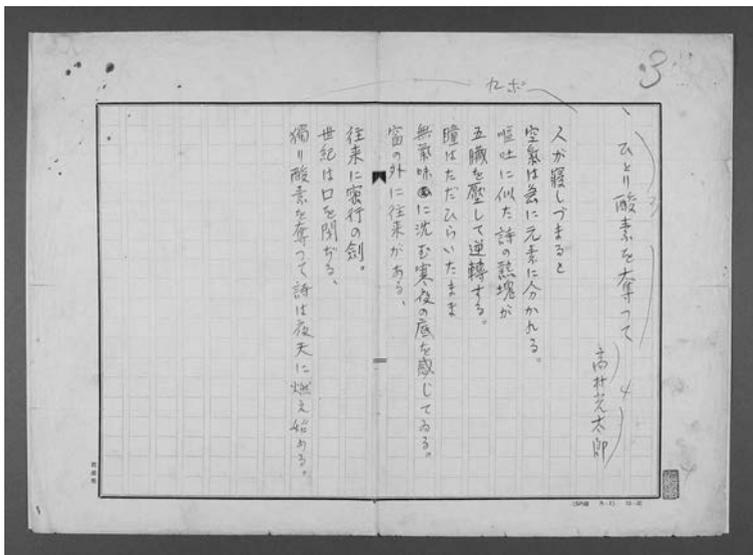 3
九ポ
ひとり酸素を奪つて
3
高村光太郎
4
人が寝しづまると
空氣は急に元素に分かれる。
嘔吐に似た詩の熱塊が
五臓を壓して逆轉する。
瞳はただひらいたまま
無氣味に沈む寒夜の底を感じてゐる。
窗の外に往来がある、
往来に蜜行の劍。
世紀は口を閉ぢる、
獨り酸素を奪つて詩は夜天に燃え始める。